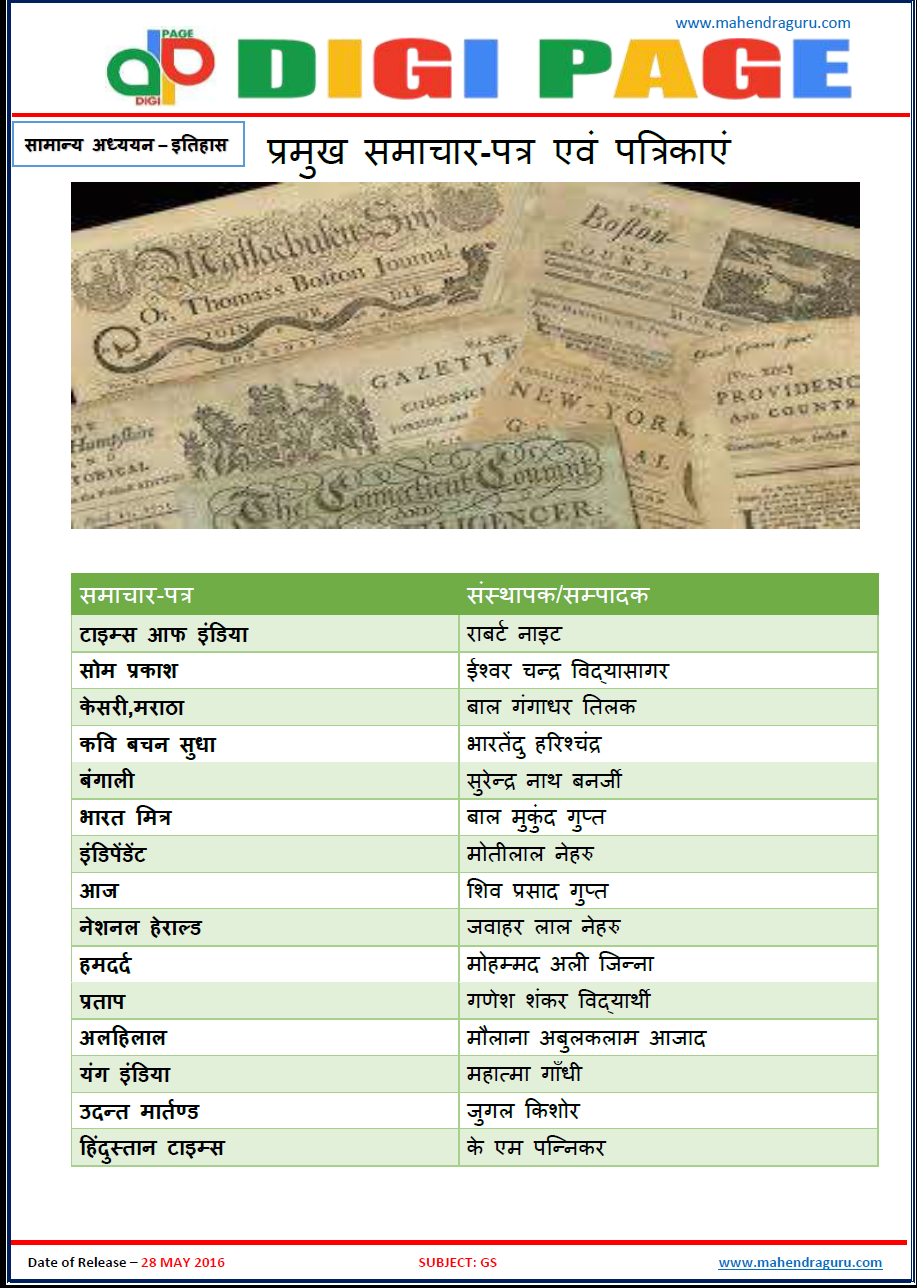 www.mahendraguru.com
PAGE
DIGI
DIGI PAGE
सामान्य अध्ययन – इतिहास
प्रमुख समाचार-पत्र एवं पत्रिकाएं
Or, Thomas's Boston Journal
JOIN OR DIE
THE
Boston-
COUNTRY
GAZETTE
CHRONICL
NEW-YORK
PROVIDENC
AND COUNTR
Hampshire
TORICAL
The Connecticut Courant
AND
LIGENCER.
समाचार-पत्र संस्थापक/सम्पादक
टाइम्स आफ इंडिया राबर्ट नाइट
सोम प्रकाश ईश्वर चन्द्र विद्यासागर
केसरी,मराठा बाल गंगाधर तिलक
कवि बचन सुधा भारतेंदु हरिश्चंद्र
बंगाली सुरेन्द्र नाथ बनर्जी
भारत मित्र बाल मुकुंद गुप्त
इंडिपेंडेंट मोतीलाल नेहरु
आज शिव प्रसाद गुप्त
नेशनल हेराल्ड जवाहर लाल नेहरु
हमदर्द मोहम्मद अली जिन्ना
प्रताप गणेश शंकर विद्यार्थी
अलहिलाल मौलाना अबुलकलाम आजाद
यंग इंडिया महात्मा गाँधी
उदन्त मार्तण्ड जुगल किशोर
हिंदुस्तान टाइम्स के एम पन्निकर
Date of Release – 28 MAY 2016 SUBJECT: GS www.mahendraguru.com